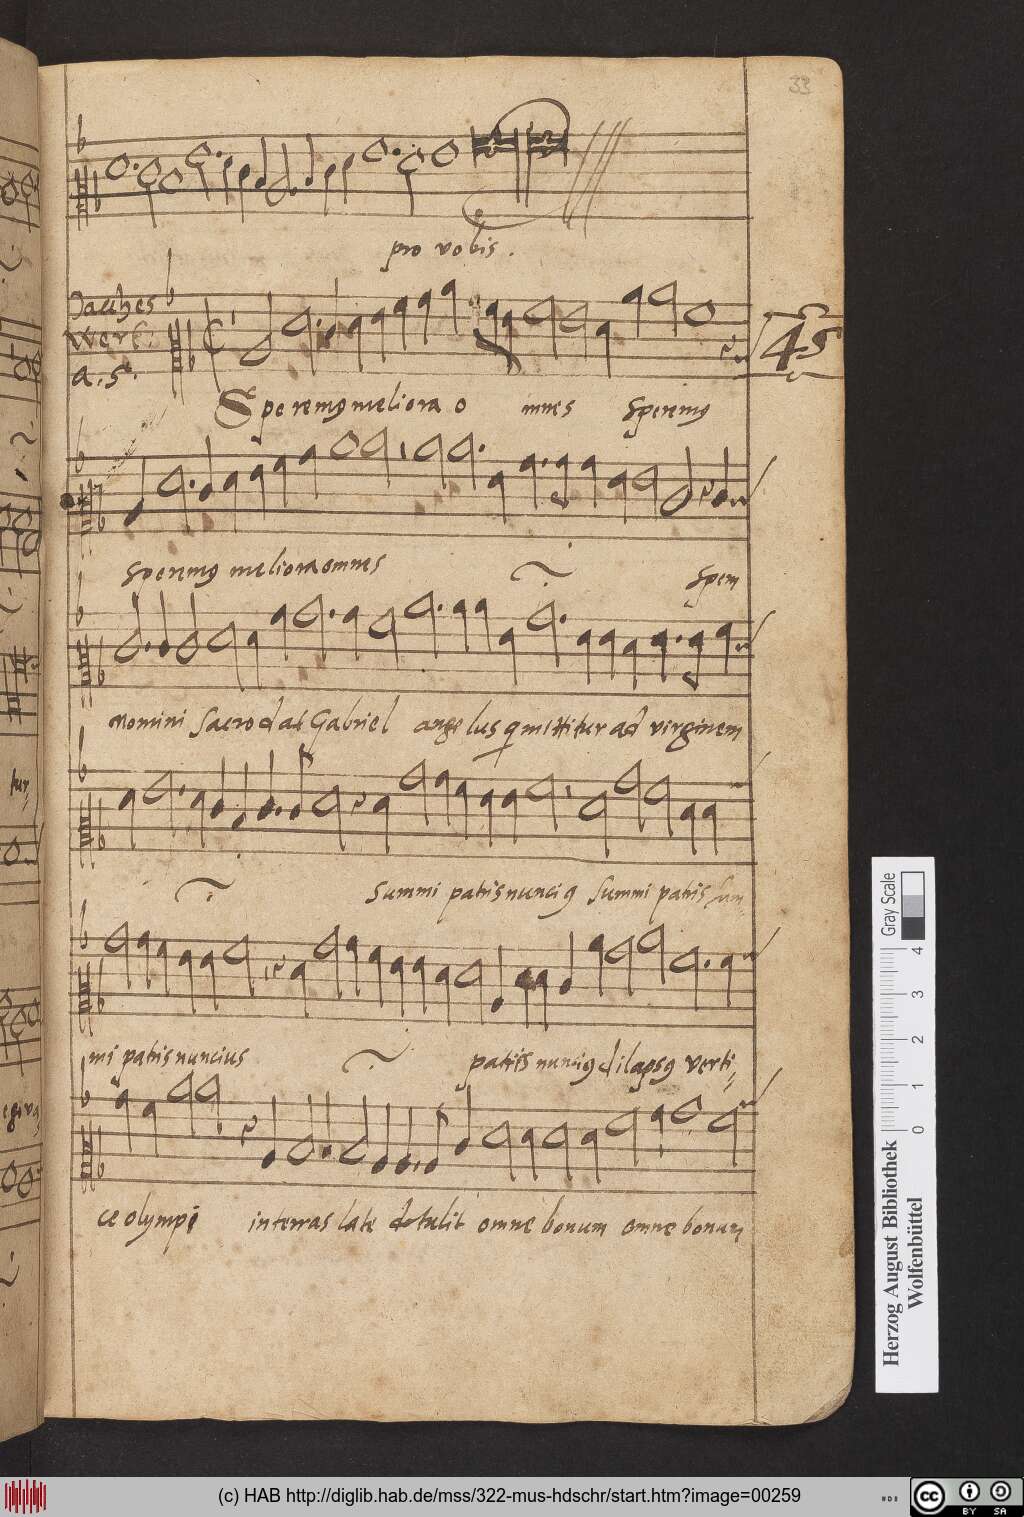 33
pro vobis .
Jaches
Wert:
a. 5.
45
Speremꝯ meliora omnes Speremꝯ
Speremꝯ meliora omnes Spem
nomini Sacro dat Gabriel angelus q mittitur ad virginem
Summi patris nunciꝯ Summi patris sum-
mi patris nuncius patris nunciꝯ dilapsꝯ verti-
ce olympi in terras late detulit omne bonum omne bonum
Gray Scale
0 1 2 3 4
Herzog August Bibliothek
Wolfenbüttel
(c) HAB http://diglib.hab.de/mss/322-mus-hdschr/start.htm?image=00259
cc BY SA